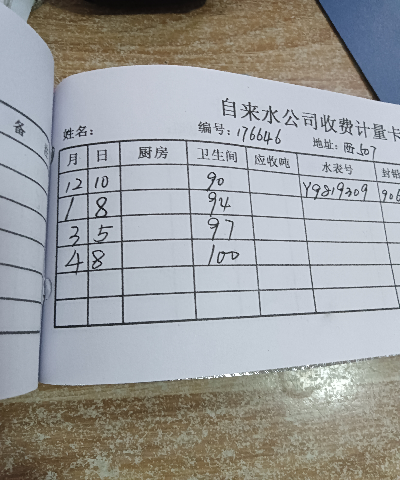 备
自来水公司收费计量卡
姓名： 编号：176646 地址：西507
月 日 厨房 卫生间 应收吨 水表号 封铅
12 10 90 Y9819309 906
1 8 94
3 5 97
4 8 100